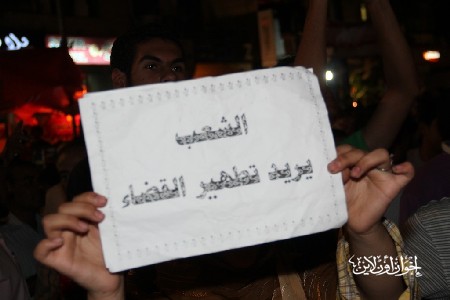 الشعب
يريد تطهير القضاء
إخوان أون لاين